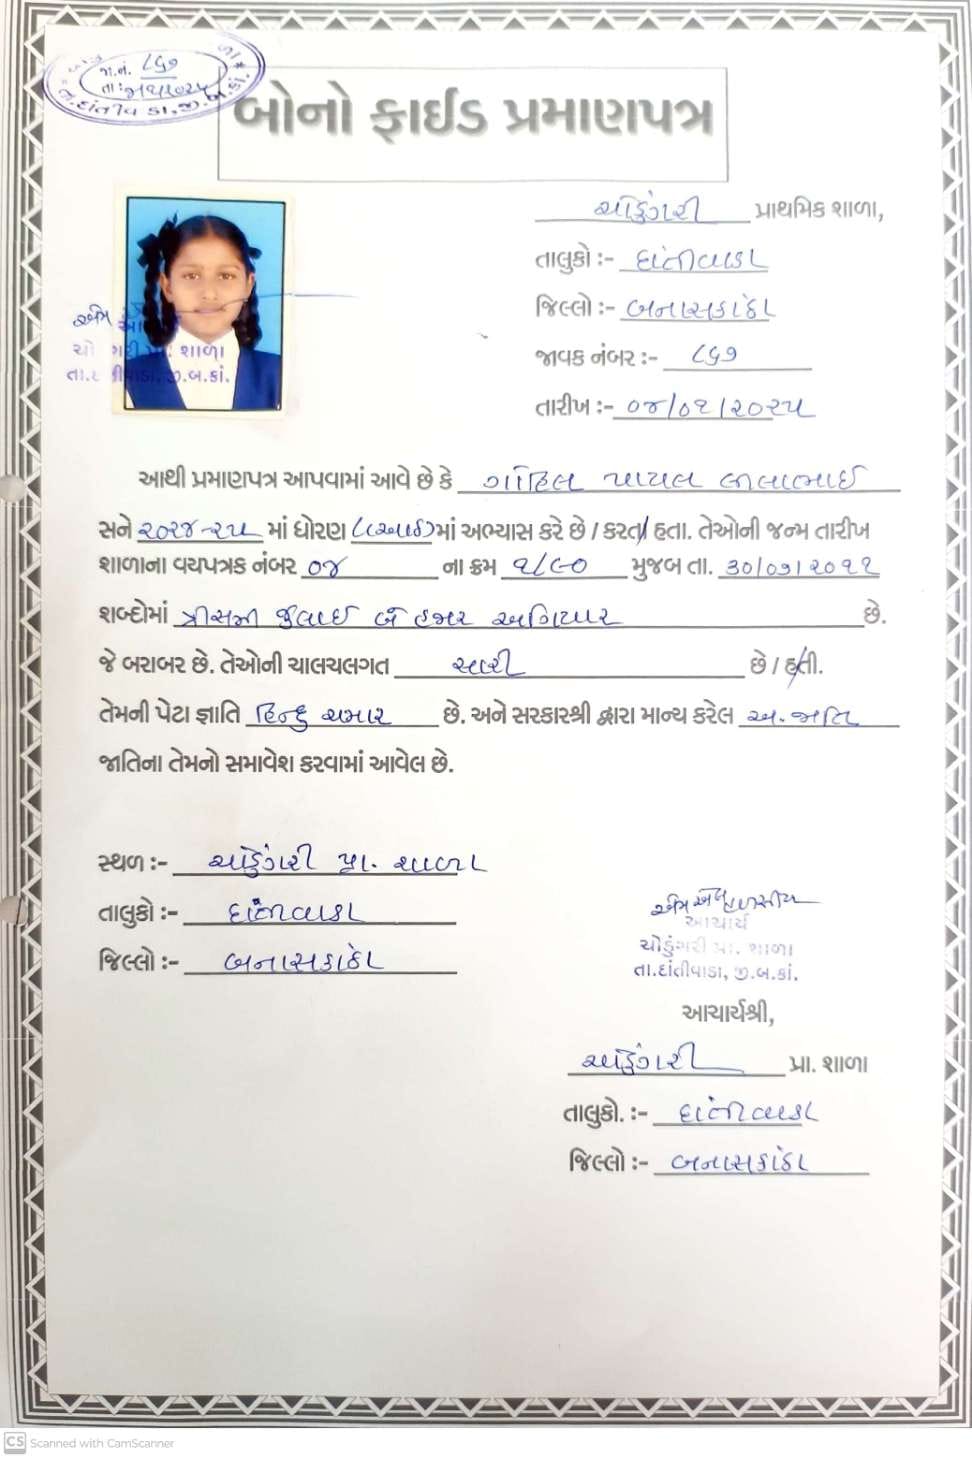 જા.નં. ૮૬૭
તા:
તા.દાંતીવાડા,જી.બ.કાં.
બોનો ફાઈડ પ્રમાણપત્ર
ચોડુંગરી પ્રાથમિક શાળા,
તાલુકો :- દાંતીવાડા
જિલ્લો :- બનાસકાંઠા
જાવક નંબર :- ૮૬૭
તારીખ :- ૦૪/૦૧/૨૦૨૫
શાળા
જી.બ.કાં.
આથી પ્રમાણપત્ર આપવામાં આવે છે કે ગોહિલ પાયલ લાલાભાઈ
સને ૨૦૨૪-૨૫ માં ધોરણ ૮(આઠ) માં અભ્યાસ કરે છે / કરતા હતા. તેઓની જન્મ તારીખ
શાળાના વયપત્રક નંબર ૦૪ ના ક્રમ ૧૮૯૦ મુજબ તા. ૩૦/૦૭/૨૦૧૧
શબ્દોમાં ત્રીસમી જુલાઈ બે હજાર અગિયાર છે.
જે બરાબર છે. તેઓની ચાલચલગત સારી છે / હતી.
તેમની પેટા જ્ઞાતિ હિન્દુ ચમાર છે. અને સરકારશ્રી દ્વારા માન્ય કરેલ અ.જાતિ
જાતિના તેમનો સમાવેશ કરવામાં આવેલ છે.
સ્થળ :- ચોડુંગરી પ્રા. શાળા
તાલુકો :- દાંતીવાડા
જિલ્લો :- બનાસકાંઠા
આચાર્ય
ચોડુંગરી પ્રા. શાળા
તા.દાંતીવાડા, જી.બ.કાં.
આચાર્યશ્રી,
ચોડુંગરી પ્રા. શાળા
તાલુકો. :- દાંતીવાડા
જિલ્લો :- બનાસકાંઠા
CS Scanned with CamScanner